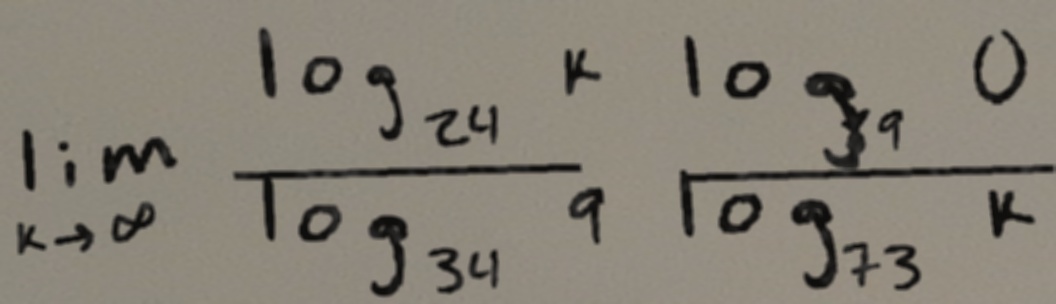 \lim_{k \to \infty} \frac{\log_{24} k}{\log_{34} 9} \frac{\log_{9} 0}{\log_{73} k}